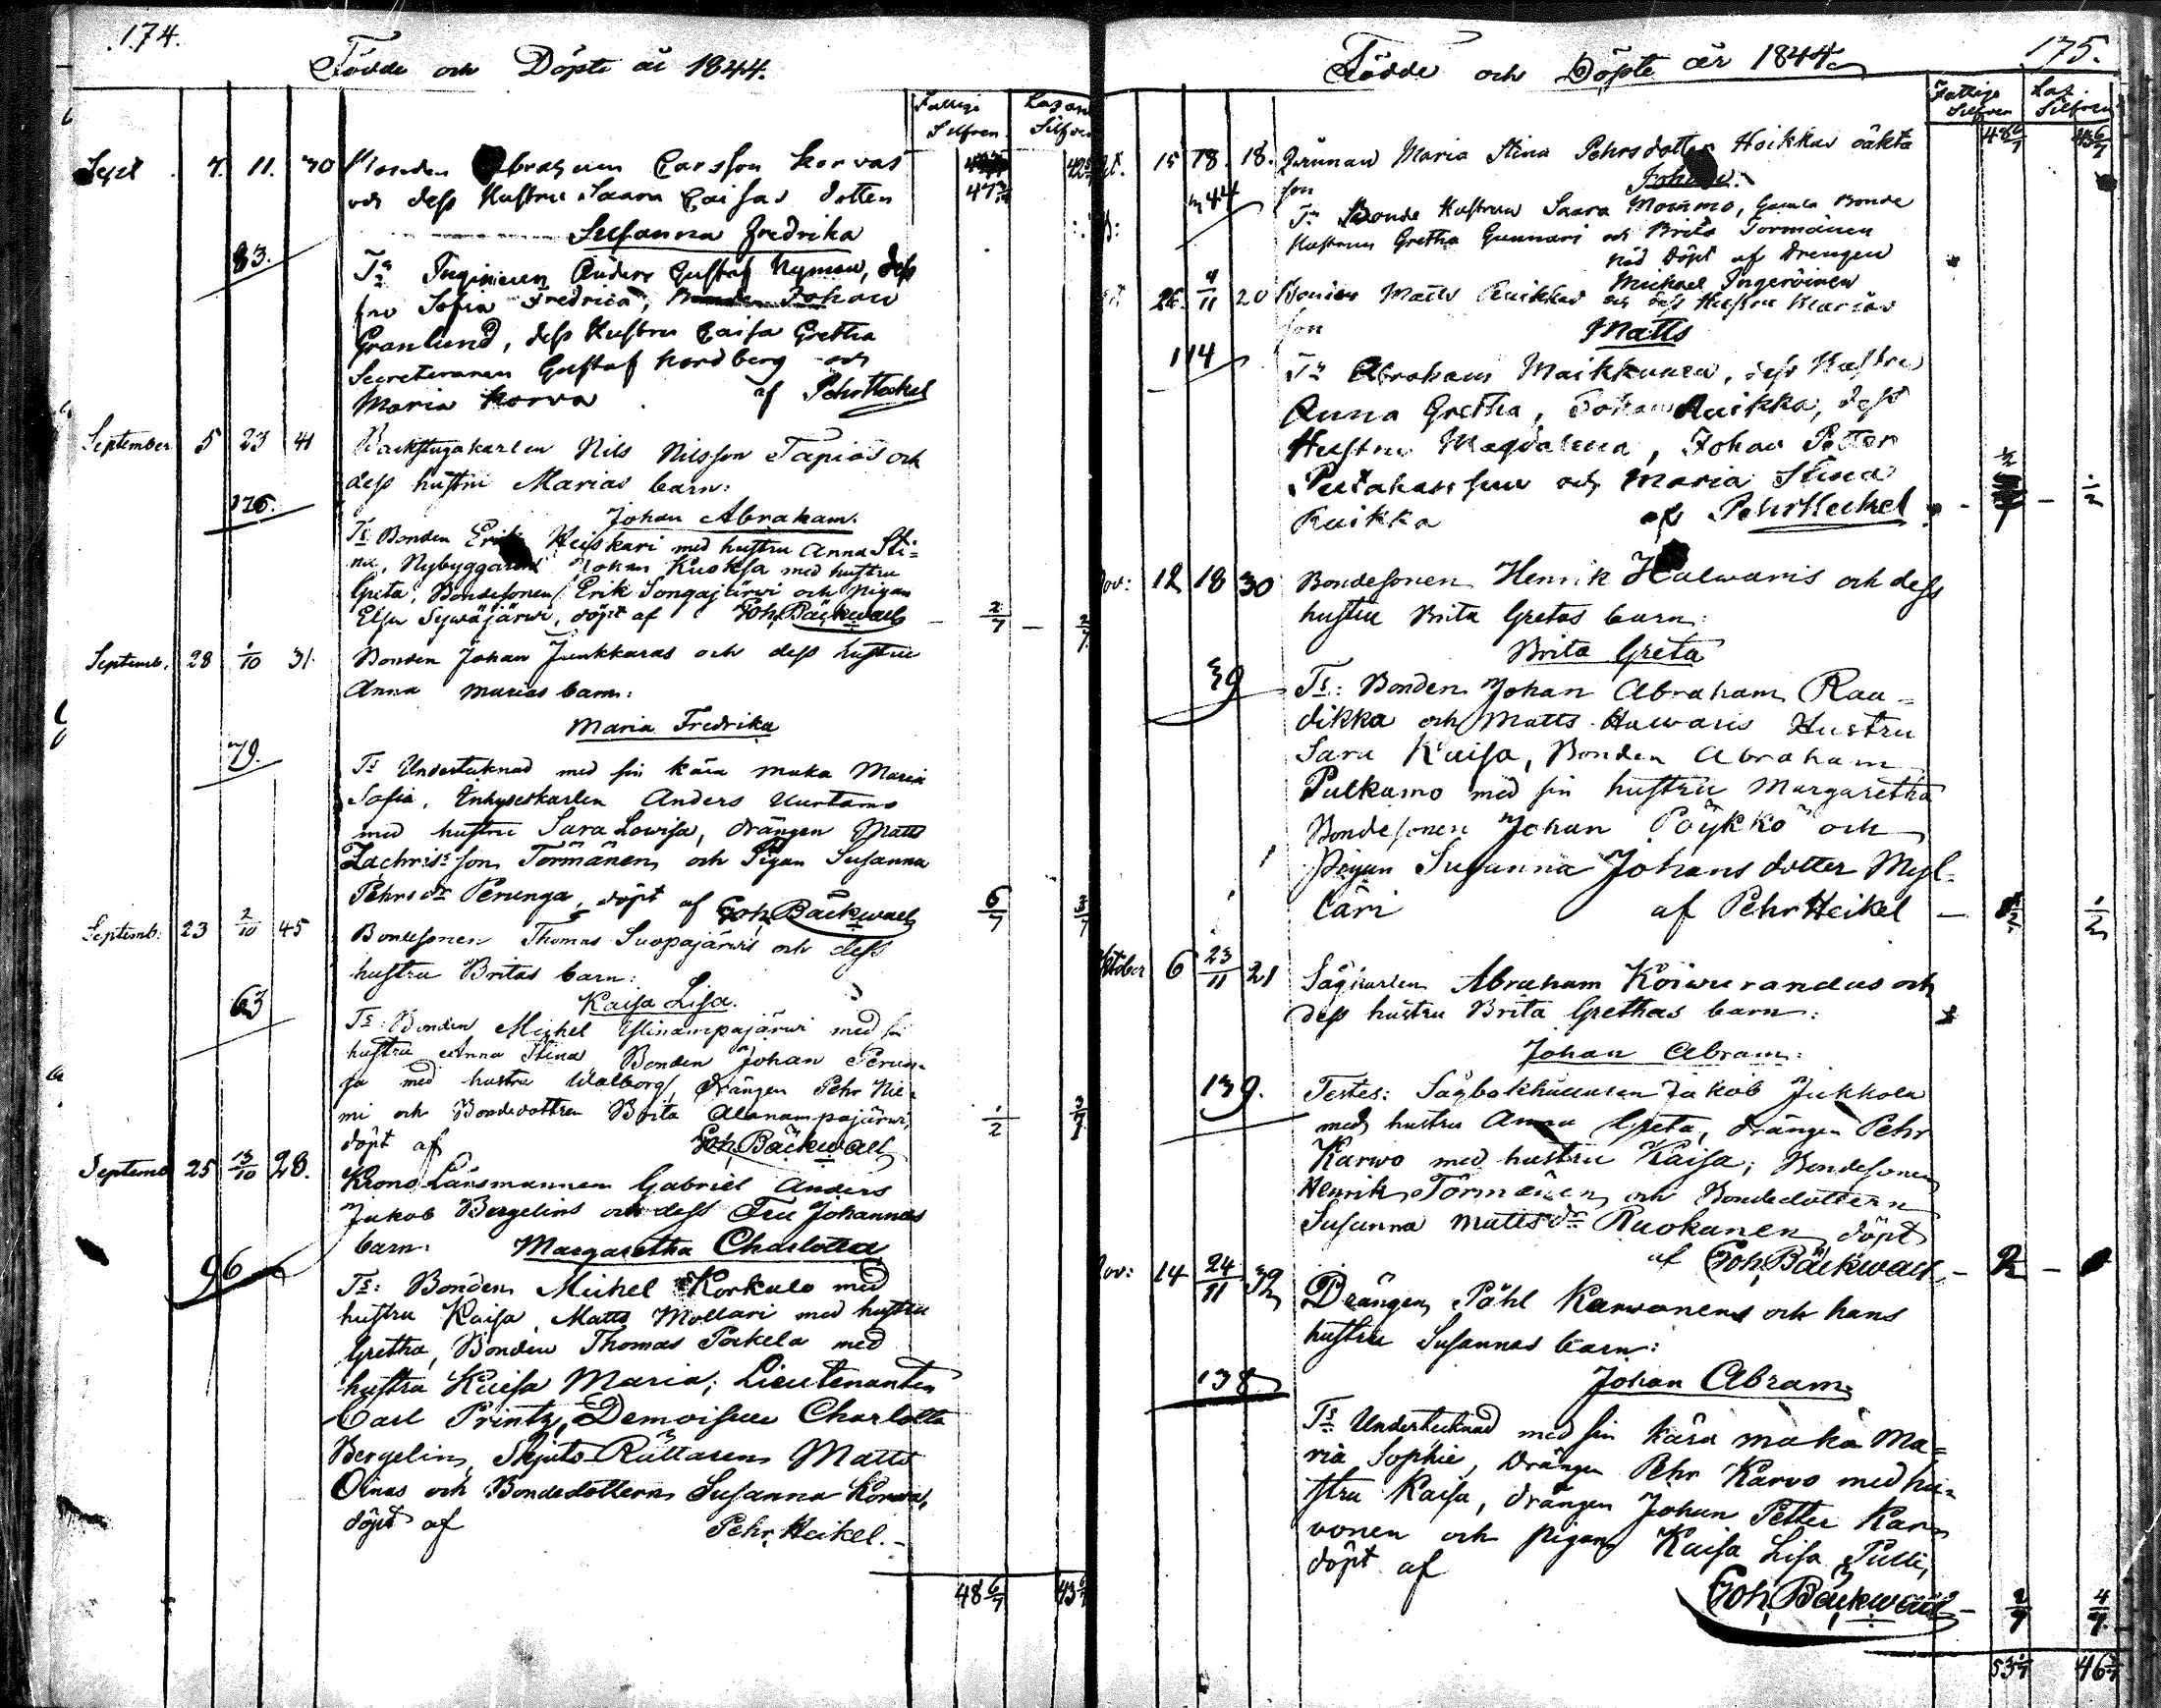 174.
Födde och Döpte år 1844.
Fattige Silfver
Silfver
Sept. 7. 11. 30 Bonden Abraham Carsson Korvas
och dess Hustru Saara Caisas dotter
Susanna Fredrika
83.
Ts Anders Gustaf Nyman, dess
fru Sofia Fredrica, Johan
Granlund, dess Hustru Caisa Gretha
Secreteraren Gustaf Nordberg och
Maria Korva af Pehr Heikel
September 5 23 41 Backstugakarlen Nils Nilsson Tapios och
dess hustru Marias barn:
Johan Abraham.
126.
Ts Bonden Erik Heiskari med hustru Anna Sti=
na, Nybyggaren Johan Kuoksa med hustru
Greta, Bondesonen Erik Songajärwi och pigan
Elsa Sywäjärwi, döpt af Joh. Bäckwall 2/7
Septemb. 28 1/10 31. Bonden Johan Junkkaras och dess hustru
Anna Marias barn:
Maria Fredrika
79.
Ts Undertecknad med sin kära maka Maria
Sofia, Inhyseskarlen Anders
med hustru Sara Lowisa, drängen Matts
Zachrisson Törmänen och Pigan Susanna
Pehrs dr Perunga, döpt af Joh. Bäckwall 6/7
Septemb: 23 2/10 45 Bondesonen Thomas Suopajärwis och dess
hustru Britas barn:
Kaisa Lisa.
63
Ts: Bonden Michel Ylinampajärwi med sin
hustru Anna Stina Bonden Johan Perun=
ga med hustru Walborg, drängen Pehr Nie=
mi och Bondedottren Brita Alanampajärwi,
döpt af Joh. Bäckwall 1/2
Septemb 25 13/10 28. Krono Länsmannen Gabriel Anders
Jakob Bergelins och dess Fru Johannas
barn: Margaretha Charlotta
96
Ts: Bonden Michel Korkulo med
hustru Kaisa, Matts Mollari med hustru
Gretha, Bonden Thomas Porkela med
hustru Kaisa Maria; Lieutenanten
Carl Printz, Demoiselle Charlotta
Bergelin, Skjuts Rättaren Matts
Oinas och Bondedottern Susanna Korwa,
döpt af Pehr Heikel.
48 6/7 43
175.
Födde och Döpte år 1844
Fattige Silfver
Laz. Silfver
48 6/7
15 18. 18. Maria Stina Pehrsdotter Hoikkas oäkta
son
Johan
44
Ts Bonde Hustrun Saara Mommo, Gamla Bonde
Hustrun Gretha Gunnari och Brita Törmänen
Nöd Döpt af Drengen
Michael Ingeröinen
26. 4/11 20 Bonden Matts Ruikkas och dess Hustru Marias
son
Matts
114
Ts Abraham Maikkunen, dess Hustru
Anna Gretha, Johan Ruikka, dess
Hustru Magdalena, Johan Petter
och Maria Stina
Ruikka af Pehr Heikel 1/2
Nov: 12 18 30 Bondesonen Henrik Halwaris och dess
hustru Brita Gretas barn:
Brita Greta
39
Ts: Bonden Johan Abraham Rau=
dikka och Matts Halwaris Hustru
Sara Kaisa, Bonden Abraham
Pulkamo med sin hustru Margaretha
Bondesonen Johan Pöykkö och
Pigan Susanna Johans dotter Myl=
läri af Pehr Heikel 1/2
Oktober 6 23/11 21 Sågkarlen Abraham Koiwurandas och
dess hustru Brita Grethas barn:
Johan Abram:
139.
Testes: Sågbokhållaren Jakob Jukkola
med hustru Anna Greta, drängen Pehr
Karwo med hustru Kaisa; Bondesonen
Henrik Törmänen och Bondedottern
Susanna Matts dr Ruokanen döpt
af Joh. Bäckwall
Nov: 14 24/11 32 Drängen Påhl Karwonens och hans
hustru Susannas barn:
Johan Abram
138
Ts Undertecknad med sin kära maka Ma=
ria Sophie, drängen Pehr Karvo med hu=
stru Kaisa, drängen Johan Petter Kar=
vonen och pigan Kaisa Lisa Pulli,
döpt af
Joh. Bäckwall 2/7 4/7
53 46